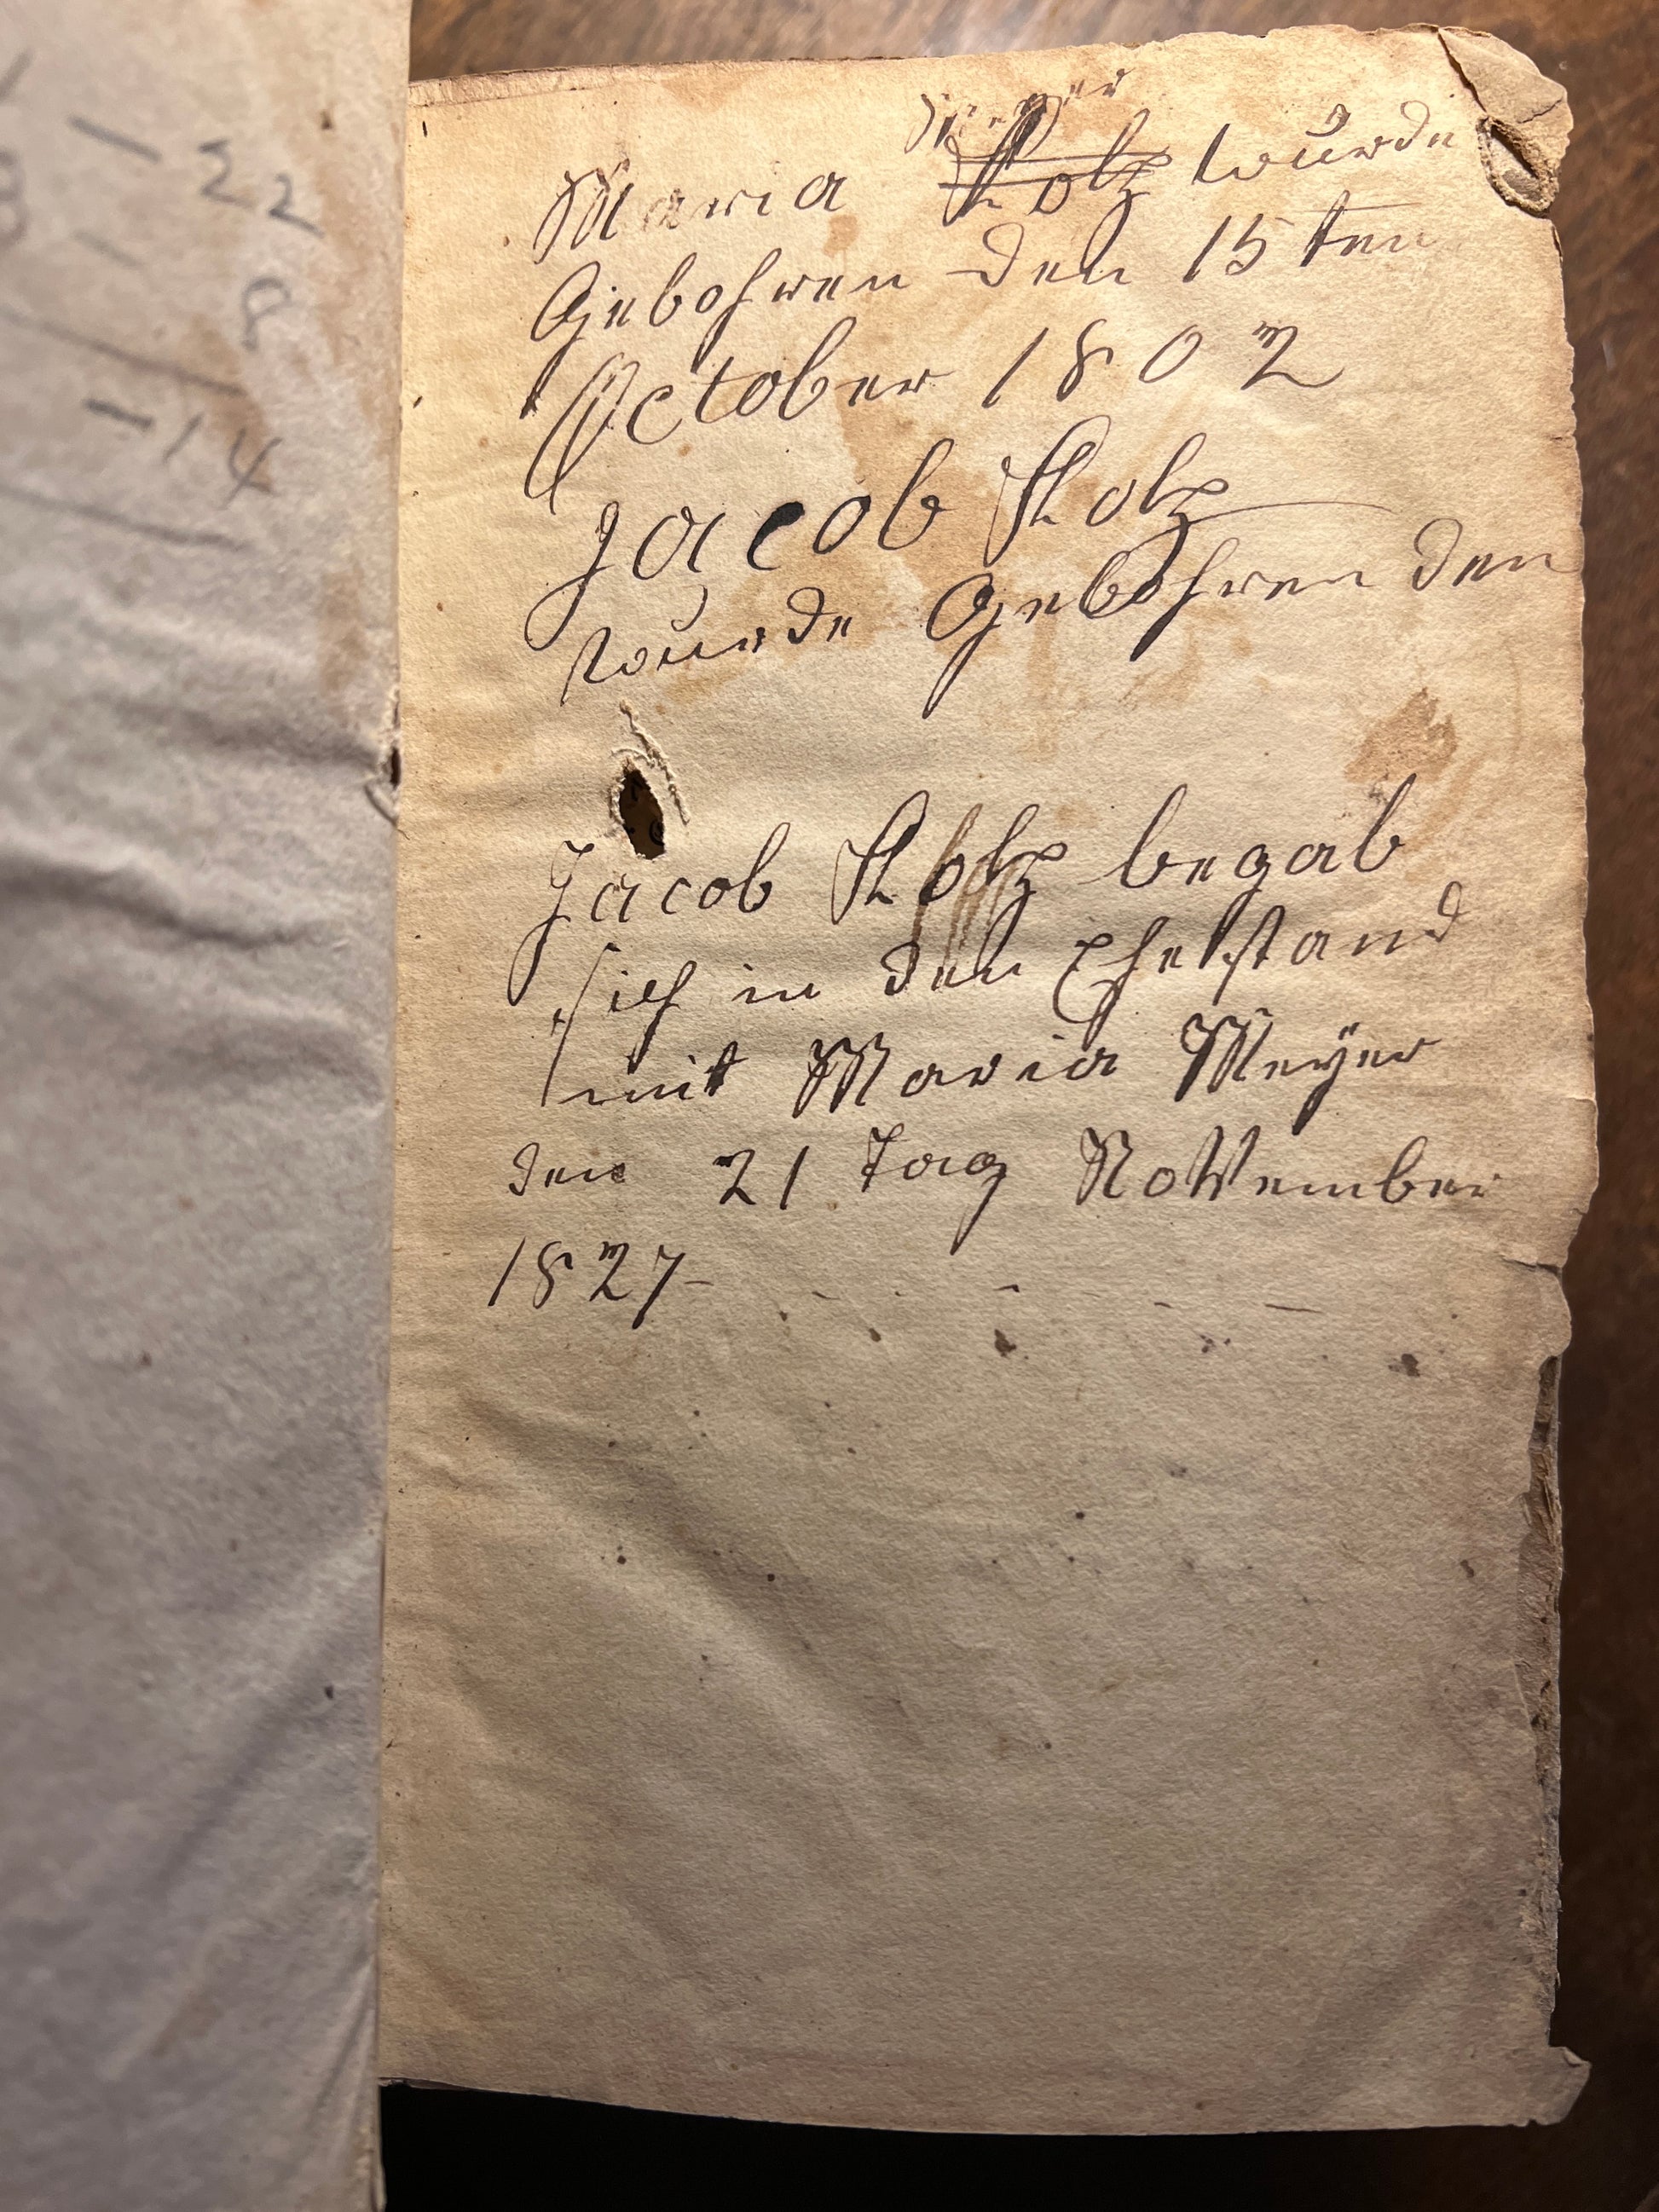 - 22
8
- 14
Meyer
Maria Stolz wurde
Gebohren den 15 ten
October 1802
Jacob Stolz
wurde Gebohren den
Jacob Stolz begab
sich in den Ehestand
mit Maria Meyer
den 21 Tag NoVember
1827